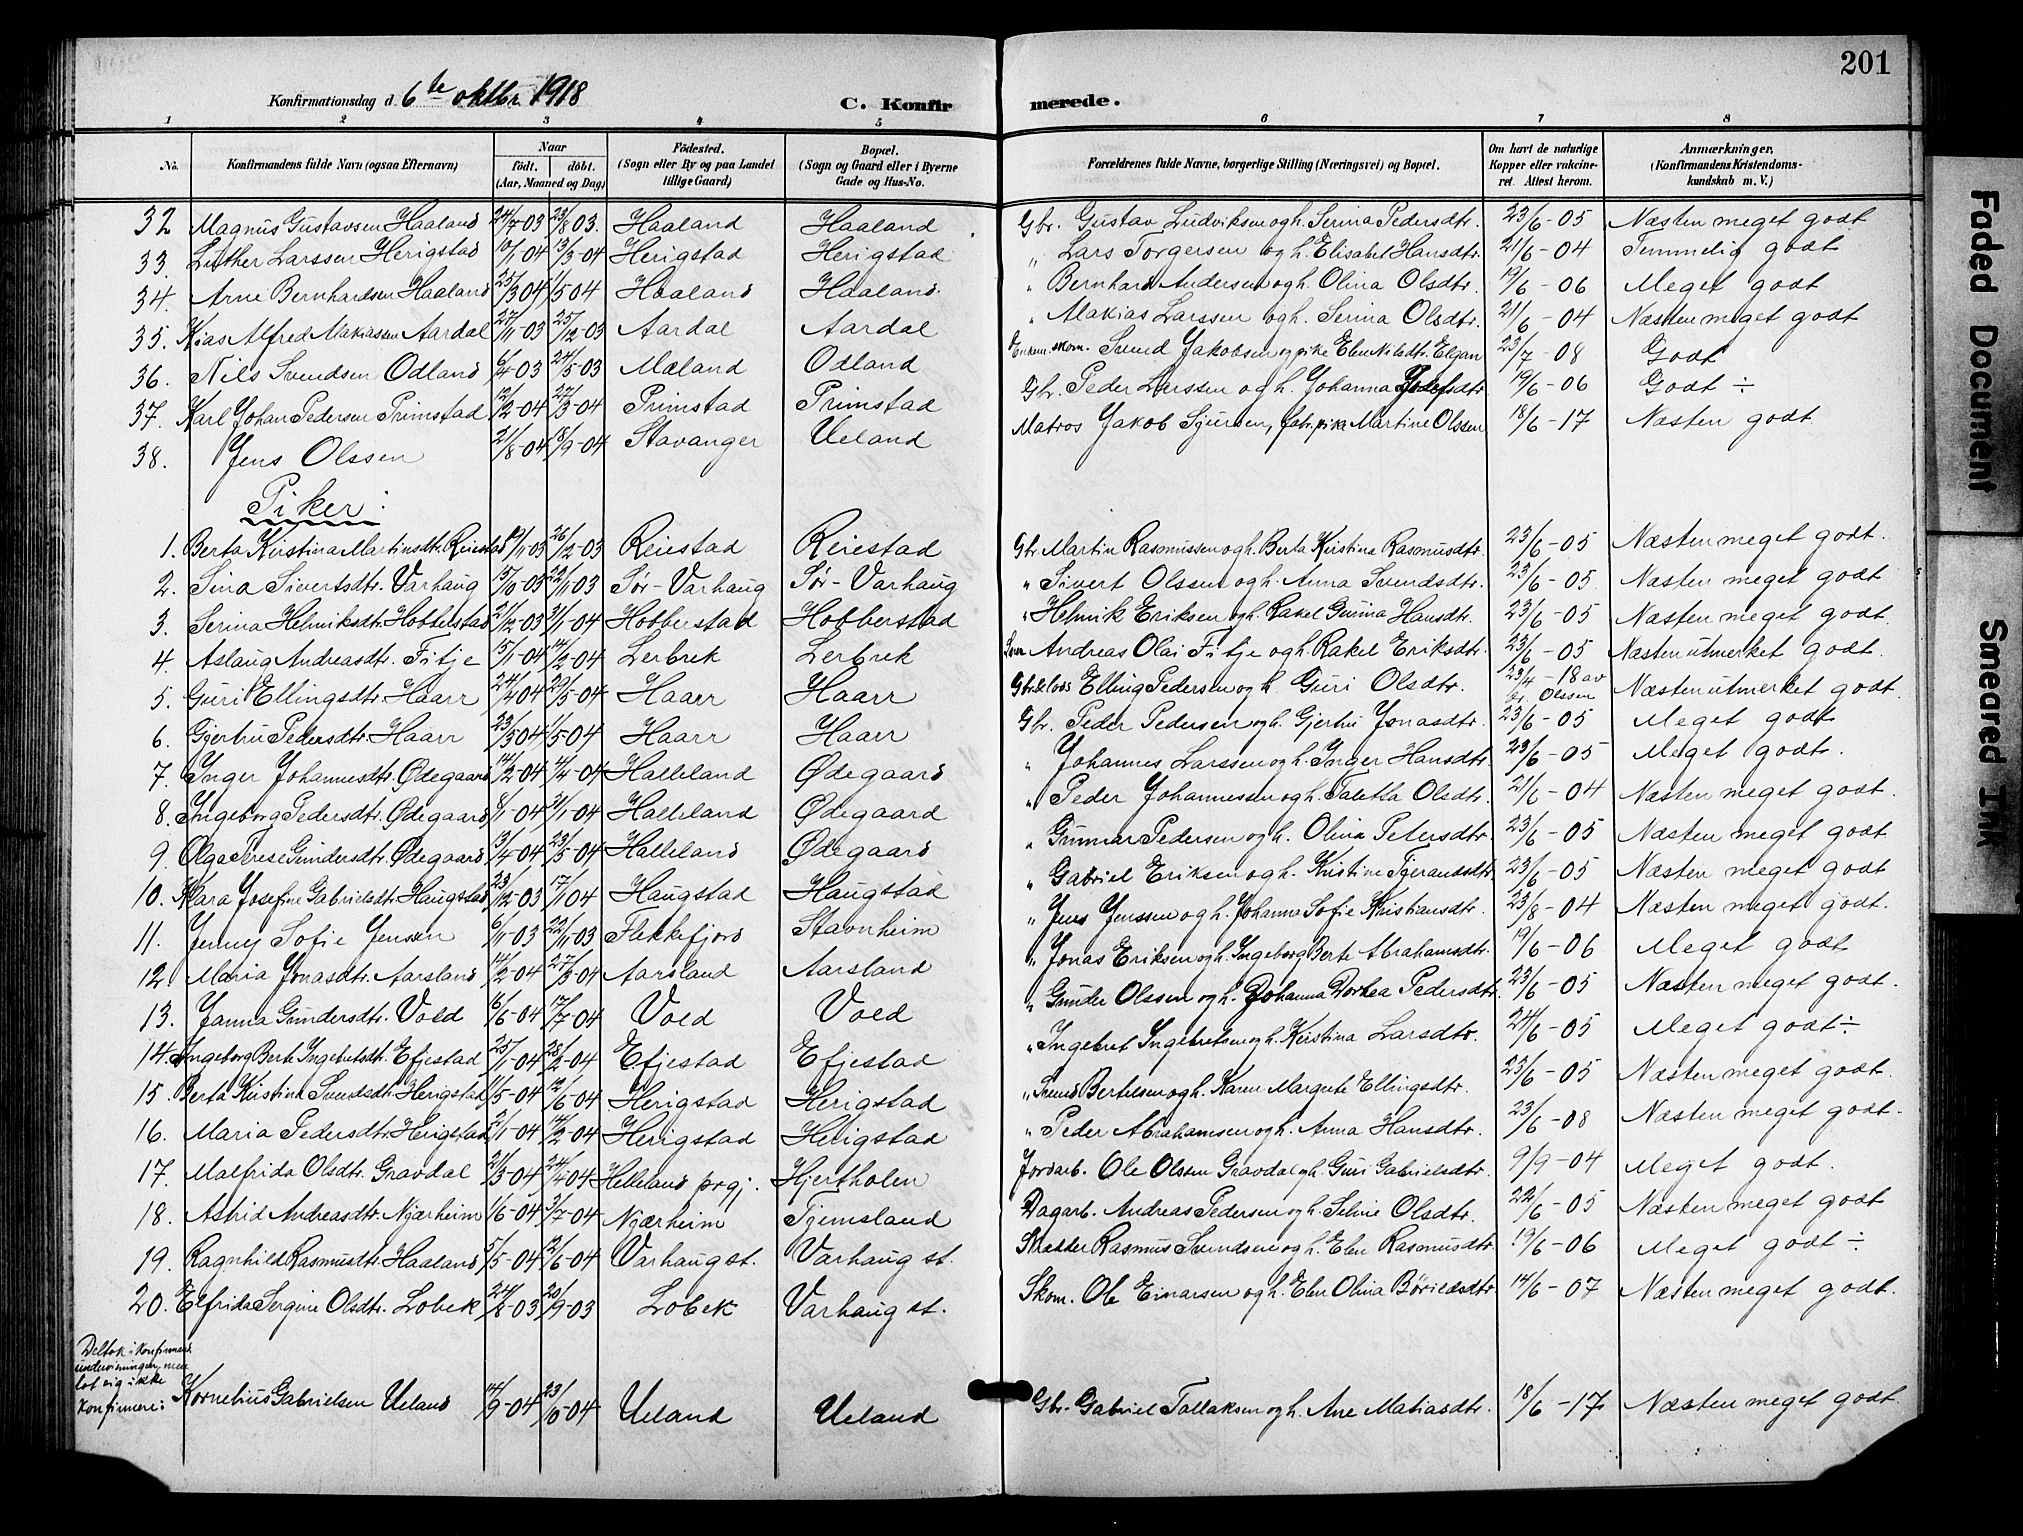 201
Konfirmationsdag d. 6te oktbr. 1918 C. Konfirmerede.
1 2 3 4 5 6 7 8
No. Konfirmandens fulde Navn (ogsaa Efternavn) Naar født. døbt. (Aar, Maaned og Dag) Fødested. (Sogn eller By og paa Landet tillige Gaard) Bopæl. (Sogn og Gaard eller i Byerne Gade og Hus-No. Forældrenes fulde Navne, borgerlige Stilling (Næringsvei) og Bopæl. Om havt de naturlige Kopper eller vakcineret. Attest herom. Anmærkninger, (Konfirmandens Kristendomskundskab m. V.)
32 Magnus Gustavsen Haaland 24/7-03 23/8 03. Haaland Haaland Gbr. Gustav Ludviksen og h. Serina Pedersdtr. 23/6-05 Næsten meget godt
33. Luther Larssen Herigstad 10/1-04 13/3-04 Herigstad Herigstad " Lars Torgersen og h. Elisabet Hansdtr. 21/6-04 Temmelig godt
34. Arne Bernhardsen Haaland 25/3 04 1/5 04 Haaland Haaland " Bernhard Andersen og h. Olina Olsdtr. 19/6-06 Meget godt
35. Kias Alfred Makiasen Aardal 27/11-03 25/12-03 Aardal Aardal " Makias Larssen og h. Serina Olsdtr. 21/6-04 Næsten meget godt
36. Nils Svendsen Odland 6/4-03 24/5-03 Mæland Odland skom. Svend Jakobsen og pike Elen Nilsdtr. Elgan 23/7-08 Godt
37. Karl Johan Pedersen Primstad 12/2-04 27/3-04 Primstad Primstad Gbr. Peder Larssen og h. Johanna Josefsdtr. 19/6-06 Godt ÷
38. Jens Olssen 21/8-04 18/9-04 Stavanger Ueland Matros Jakob Sjursen, fabr.pike Martine Olssen 18/6-17 Næsten godt
Piker:
1. Berta Kristina Martinsdtr. Reiestad /11-03 26/12-03 Reiestad Reiestad Gbr. Martin Rasmussen og h. Berta Kristina Rasmusdtr. 23/6-05 Næsten meget godt.
2. Sina Sivertsdtr. Varhaug 15/10-03 22/11 03 Sør-Varhaug Sør-Varhaug " Sivert Olssen og h. Anna Svendsdtr. 23/6-05 Næsten meget godt
3. Serina Helmiksdtr. Hobberstad 21/12-03 31/1-04 Hobberstad Hobberstad " Helmik Eriksen og h. Rakel Gurina Hansdtr. 23/6-05 Næsten meget godt.
4. Aslaug Andreasdtr. Fitje 15/1-04 14/2-04 Lerbrek Lerbrek Andreas Olai Fitje og h. Rakel Eriksdtr. 23/6-05 Næsten utmerket godt.
5. Guri Ellingsdtr. Haarr 24/4 04 29/5-04 Haarr Haarr Elling Pedersen og h. Guri Olsdtr. 23/4-18 av Olssen Næsten utmerket godt.
6. Gjertru Pedersdtr. Haarr 23/3 04 1/5 04 Haarr Haarr Gbr. Peder Pedersen og h. Gjertru Jonasdtr. 23/6-05 Meget godt
7. Inger Johannesdtr. Ødegaard 14/2-04 4/4-04 Halleland Ødegaard " Johannes Larssen og h. Inger Hansdtr. 23/6-05 Meget godt.
8. Ingeborg Pedersdtr. Ødegaard 8/1-04 31/1-04 Halleland Ødegaard " Peder Johannessen og h. Taletta Olsdtr. 21/6-04 Næsten meget godt.
9. Olga Terese Gundersdtr. Ødegaard 13/4-04 23/5-04 Halleland Ødegaard " Gunnar Pedersen og h. Olina Petersdtr. 23/6-05 Næsten meget godt
10. Klara Josefine Gabrielsdtr. Haugstad 23/12-03 17/1 04 Haugstad Haugstad " Gabriel Eriksen og h. Kristine Tjerandsdtr. 23/6-05 Næsten meget godt
11. Jenny Sofie Jenssen 6/11-03 22/11 03 Flekkefjord Stavnheim " Jens Jenssen og h. Johanna Sofie Kristiansdtr. 23/8-04 Næsten meget godt.
12. Maria Jonasdtr. Aarsland 14/2-04 27/3-04 Aarsland Aarsland " Jonas Eriksen og h. Ingeborg Berte Abrahamsdtr. 19/6-06 Meget godt
13. Janna Gundersdtr. Vold 16/6-04 17/7-04 Vold Vold " Gunder Olssen og h. Johanna Dortea Pedersdtr. 23/6-05 Næsten meget godt.
14. Ingeborg Berte Ingebretsdtr. Efjestad 25/1-04 28/2-04 Efjestad Efjestad " Ingebret Ingebretsen og h. Kristina Larsdtr. 24/6-05 Meget godt ÷
15. Berta Kristina Svendsdtr. Herigstad 11/5-04 12/6-04 Herigstad Herigstad " Svend Bertelsen og h. Karen Margrete Ellingsdtr. 23/6-05 Næsten meget godt.
16. Maria Pedersdtr. Herigstad 5/1-04 14/2-04 Herigstad Herigstad " Peder Abrahamsen og h. Anna Hansdtr. 23/6-08 Næsten meget godt.
17. Malfrida Olsdtr. Gravdal 21/3-04 24/4 04 Helleland prgj. Hjertholen Jordarb. Ole Olsen Gravdal og h. Guri Gabrielsdtr. 9/9-04 Meget godt.
18. Astrid Andreasdtr. Njærheim 1/6-04 3/7-04 Njærheim Tjemsland Dagarb. Andreas Pedersen og h. Seline Olsdtr. 22/6-05 Næsten meget godt
19. Ragnhild Rasmusdtr. Haaland 5/5-04 12/6-04 Varhaug st. Varhaug st. Rasmus Svendsen og h. Elen Rasmusdtr. 19/6-06 Meget godt ÷
20. Elfrida Sergine Olsdtr. Lobek 24/8-03 20/9-03 Lobek Varhaug st. Skom. Ole Einarsen og h. Elen Olina Børildsdtr. 14/6-07 Næsten meget godt.
Deltok i konfirmand
undervisningen, men
lot sig ikke
konfirmere: Kornelius Gabrielsen Ueland 14/9-04 23/10-04 Ueland Ueland Gbr. Gabriel Tallaksen og h. Ane Matiasdtr. 18/6-17 Næsten meget godt
Faded Document
Smeared Ink